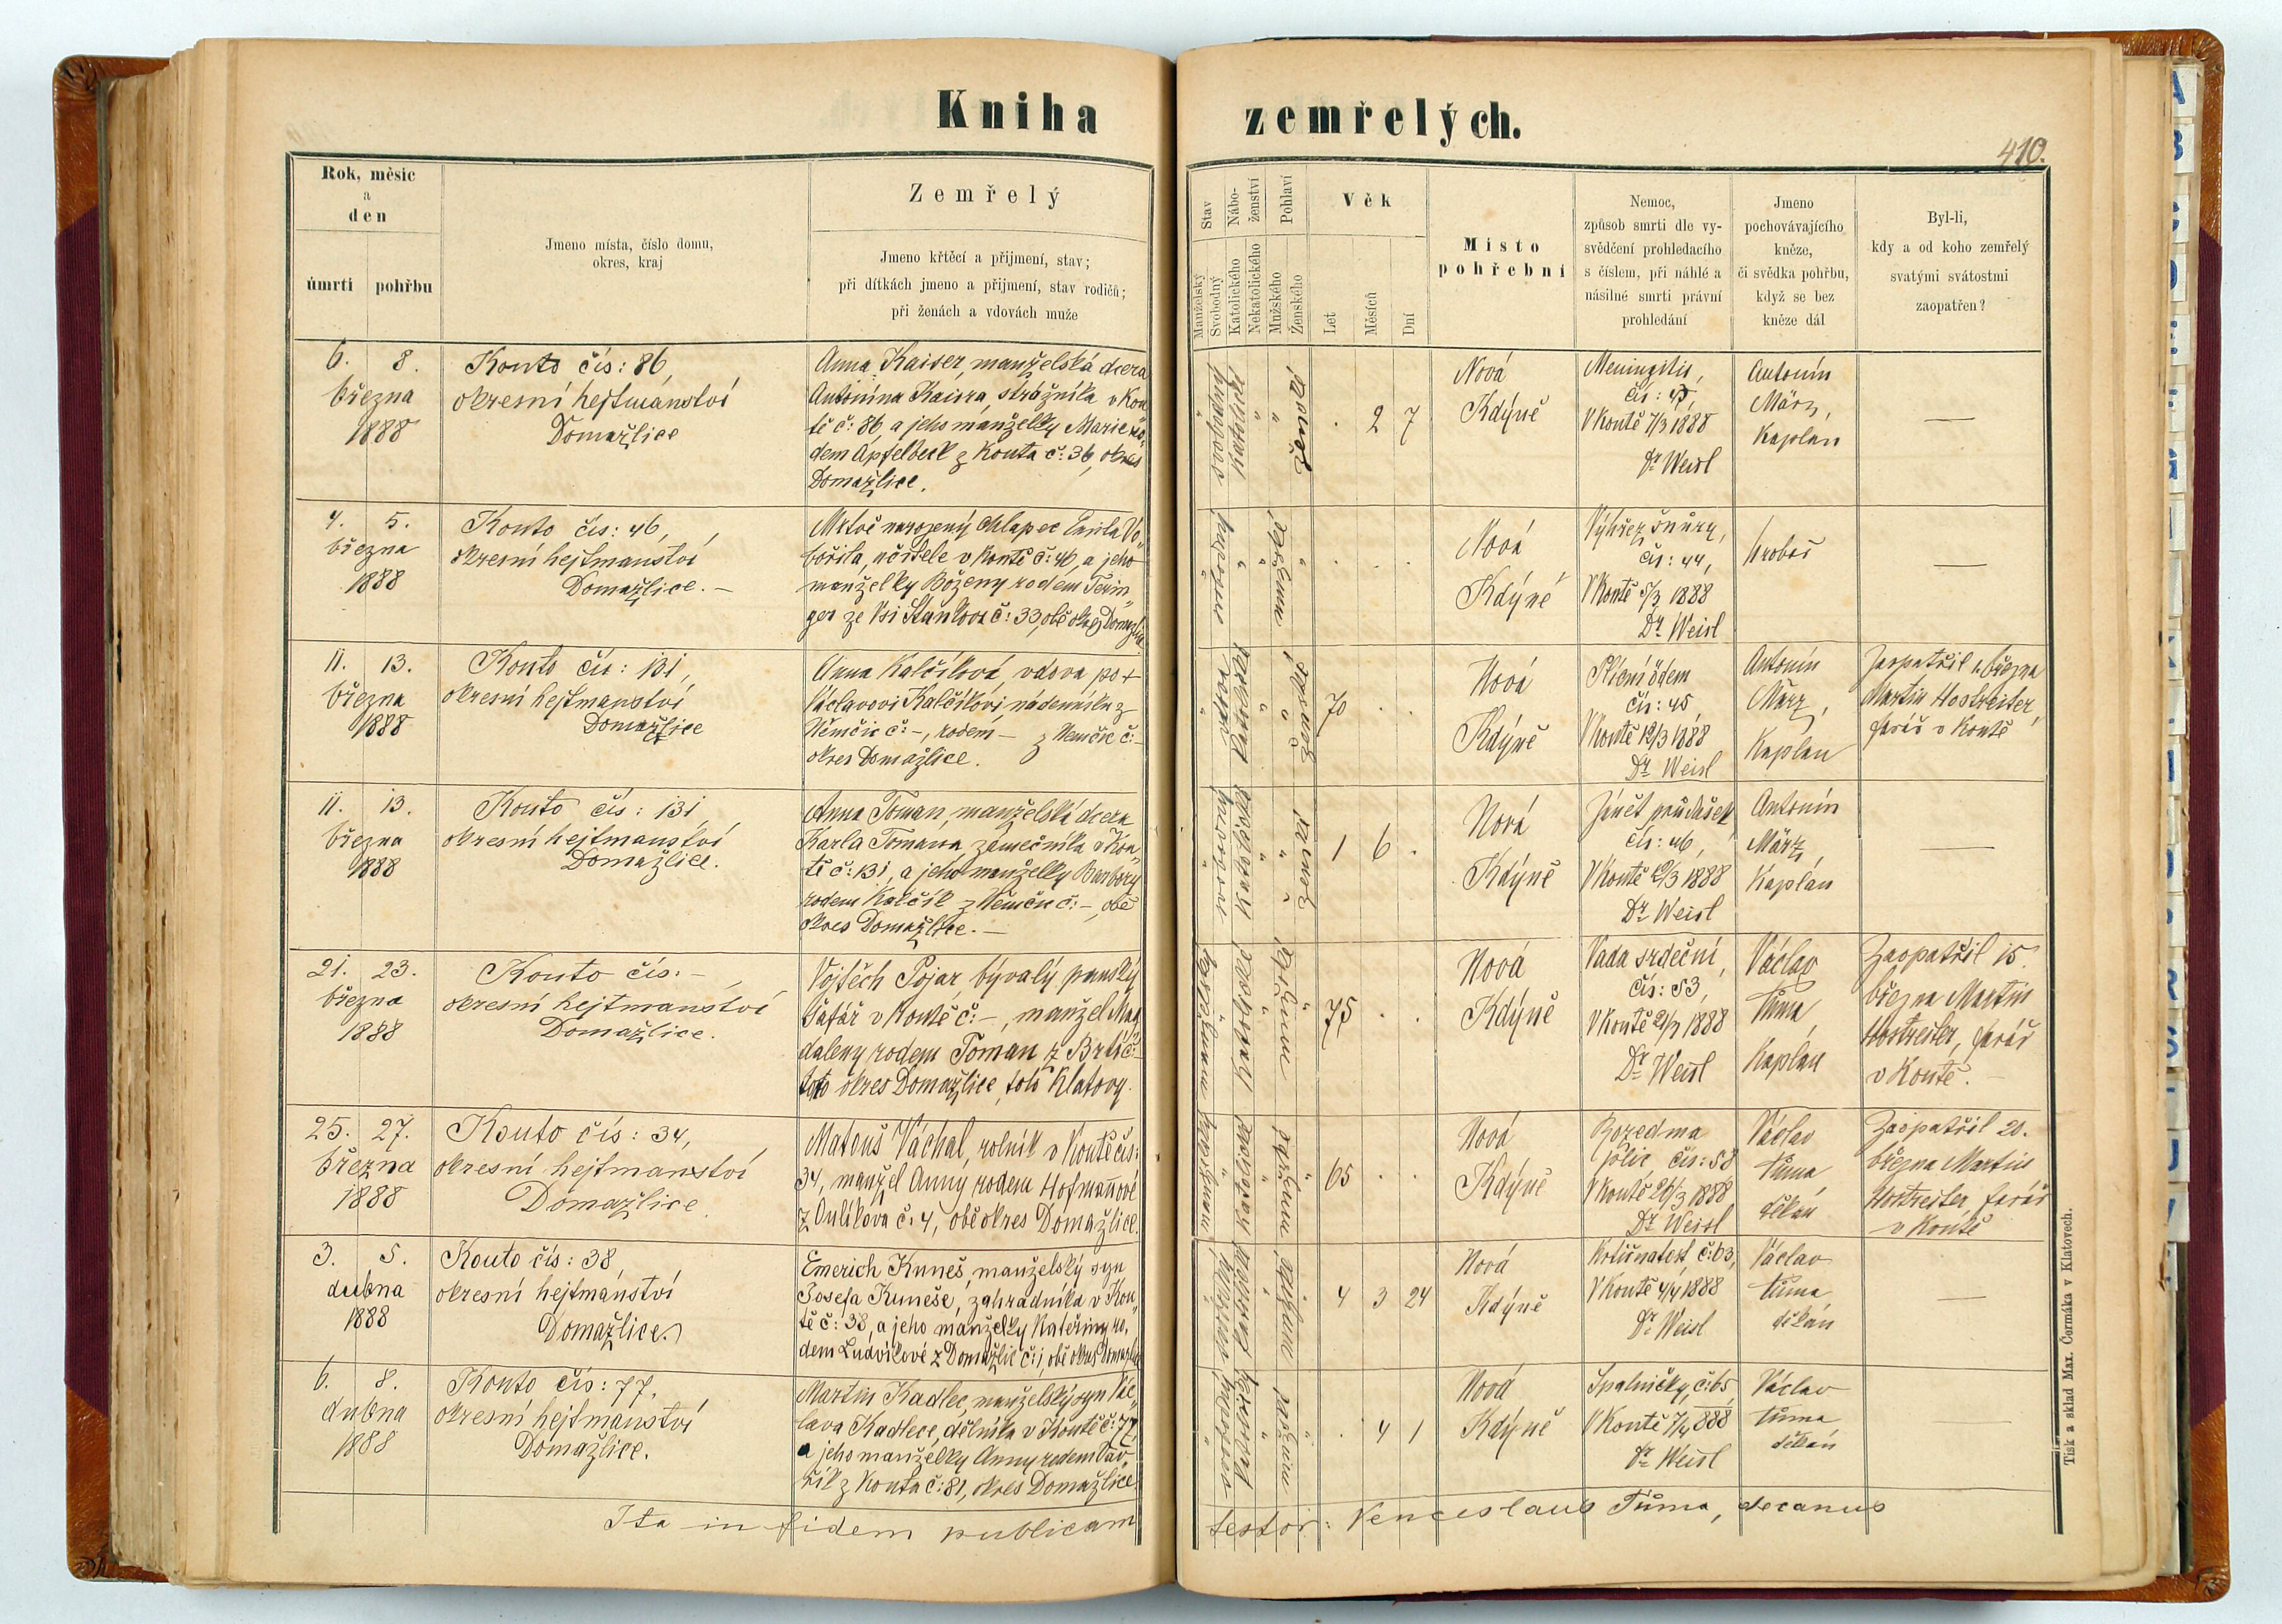 Kniha zemřelých.
410.
Rok, měsíc
a
den
úmrtí pohřbu
Jmeno místa, číslo domu,
okres, kraj
Zemřelý
Jmeno křtěcí a přijmení, stav;
při dítkách jmeno a přijmení, stav rodičů;
při ženách a vdovách muže
Stav
Manželský
Svobodný
Nábo-
ženství
Katolického
Nekatolického
Pohlaví
Mužského
Ženského
Věk
Let
Měsíců
Dní
Místo
pohřební
Nemoc,
způsob smrti dle vy-
svědčení prohledacího
s číslem, při náhlé a
násilné smrti právní
prohledání
Jmeno
pochovávajícího
kněze,
či svědka pohřbu,
když se bez
kněze dál
Byl-li,
kdy a od koho zemřelý
svatými svátostmi
zaopatřen?
6. 8.
března
1888
Kouto čís: 86,
okresní hejtmanství
Domažlice
Anna Kaiser, manželská dcera
Antonína Kaisra, strážníka v Kou„
tě č: 86, a jeho manželky Marie ro„
dem Apfelbeck z Kouta č: 36, okres
Domažlice.
. 2 7
Nová
Kdýně
Meningitis,
V Koutě 7/3 1888
Dr Weisl
Antonín
März,
Kaplán
—
4. 5.
března
1888
Kouto čís: 46,
okresní hejtmanství
Domažlice. —
Mrtvě narozený chlapec Emila Vo„
bořila, učitele v Koutě č: 46, a jeho
manželky Boženy rodem
ger ze Vsi Štaňkova č: 33, obě okres Domažlice
. . .
Nová
Kdýně
Výhřez šnůry,
čís: 44,
V Koutě 5/3 1888
Dr Weisl
hrobař
—
11. 13.
března
1888
Kouto čís: 131,
okresní hejtmanství
Domažlice
Anna Kalčíková, vdova, po +
Václavovi Kalčíkovi, nádenníku z
Němčic č: –, rodem – z Němčic č: –
okres Domažlice.
70 . .
Nová
Kdýně
Plicní ödem
čís: 45,
V Koutě 12/3 1888
Dr Weisl
Antonín
März,
Kaplan
Zaopatřil března
Martin Hostreiter,
farář v Koutě
11. 13.
března
1888
Kouto čís: 131,
okresní hejtmanství
Domažlice.
Anna Toman, manželská dcera
Karla Tomana, zámečníka v Kou„
tě č: 131, a jeho manželky Barbory
rodem Kalčík z Němčic č: –, obě
okres Domažlice. —
1 6 .
Nová
Kdýně
Zánět průdušek
čís: 46,
V Koutě 12/3 1888
Dr Weisl
Antonín
März,
Kaplán
—
21. 23.
března
1888
Kouto čís: –,
okresní hejtmanství
Domažlice.
Vojtěch Pojar, bývalý panský
šafář v Koutě č: –, manžel Mag„
daleny rodem Toman z Brtí č: –
toto okres Domažlice, toto Klatovy.
75 . .
Nová
Kdýně
Vada srdeční,
čís: 53,
V Koutě 21/3 1888
Dr Weisl
Václav
Tůma,
Kaplán
Zaopatřil 15.
března Martin
Hostreiter, farář
v Koutě. —
25. 27.
března
1888
Kouto čís: 34,
okresní hejtmanství
Domažlice.
Matouš Váchal, rolník v Koutě čís:
34, manžel Anny rodem Hofmannové
z Oulíkova č: 4, obě okres Domažlice.
65 . .
Nová
Kdýně
Rozedma
plic, čís: 58
V Koutě 26/3 1888
Dr Weisl
Václav
Tůma,
děkan
Zaopatřil 20.
března Martin
Hostreiter, farář
v Koutě
3. 5.
dubna
1888
Kouto čís: 38,
okresní hejtmanství
Domažlice.
Emerich Kuneš, manželský syn
Josefa Kuneše, zahradníka v Kou„
tě č: 38, a jeho manželky Kateřiny ro„
dem Ludvíkové z Domažlic č: 1, obě okres Domažlice
4 3 24
Nová
Kdýně
č: 63,
V Koutě 4/4 1888
Dr Weisl
Václav
Tůma
děkán
—
6. 8.
dubna
1888
Kouto čís: 77,
okresní hejtmanství
Domažlice.
Martin Kadlec, manželský syn Vác„
lava Kadlece, dělníka v Koutě č: 77,
a jeho manželky Anny rodem Vav„
řík z Kouta č: 81, okres Domažlice.
. 4 1
Nová
Kdýně
Spalničky, č: 65,
V Koutě 7/4 888
Dr Weisl
Václav
Tůma
děkan
—
Ita in fidem publicam testor: Venceslaus Tůma, decanus
Tisk a sklad Max. Čermáka v Klatovech.